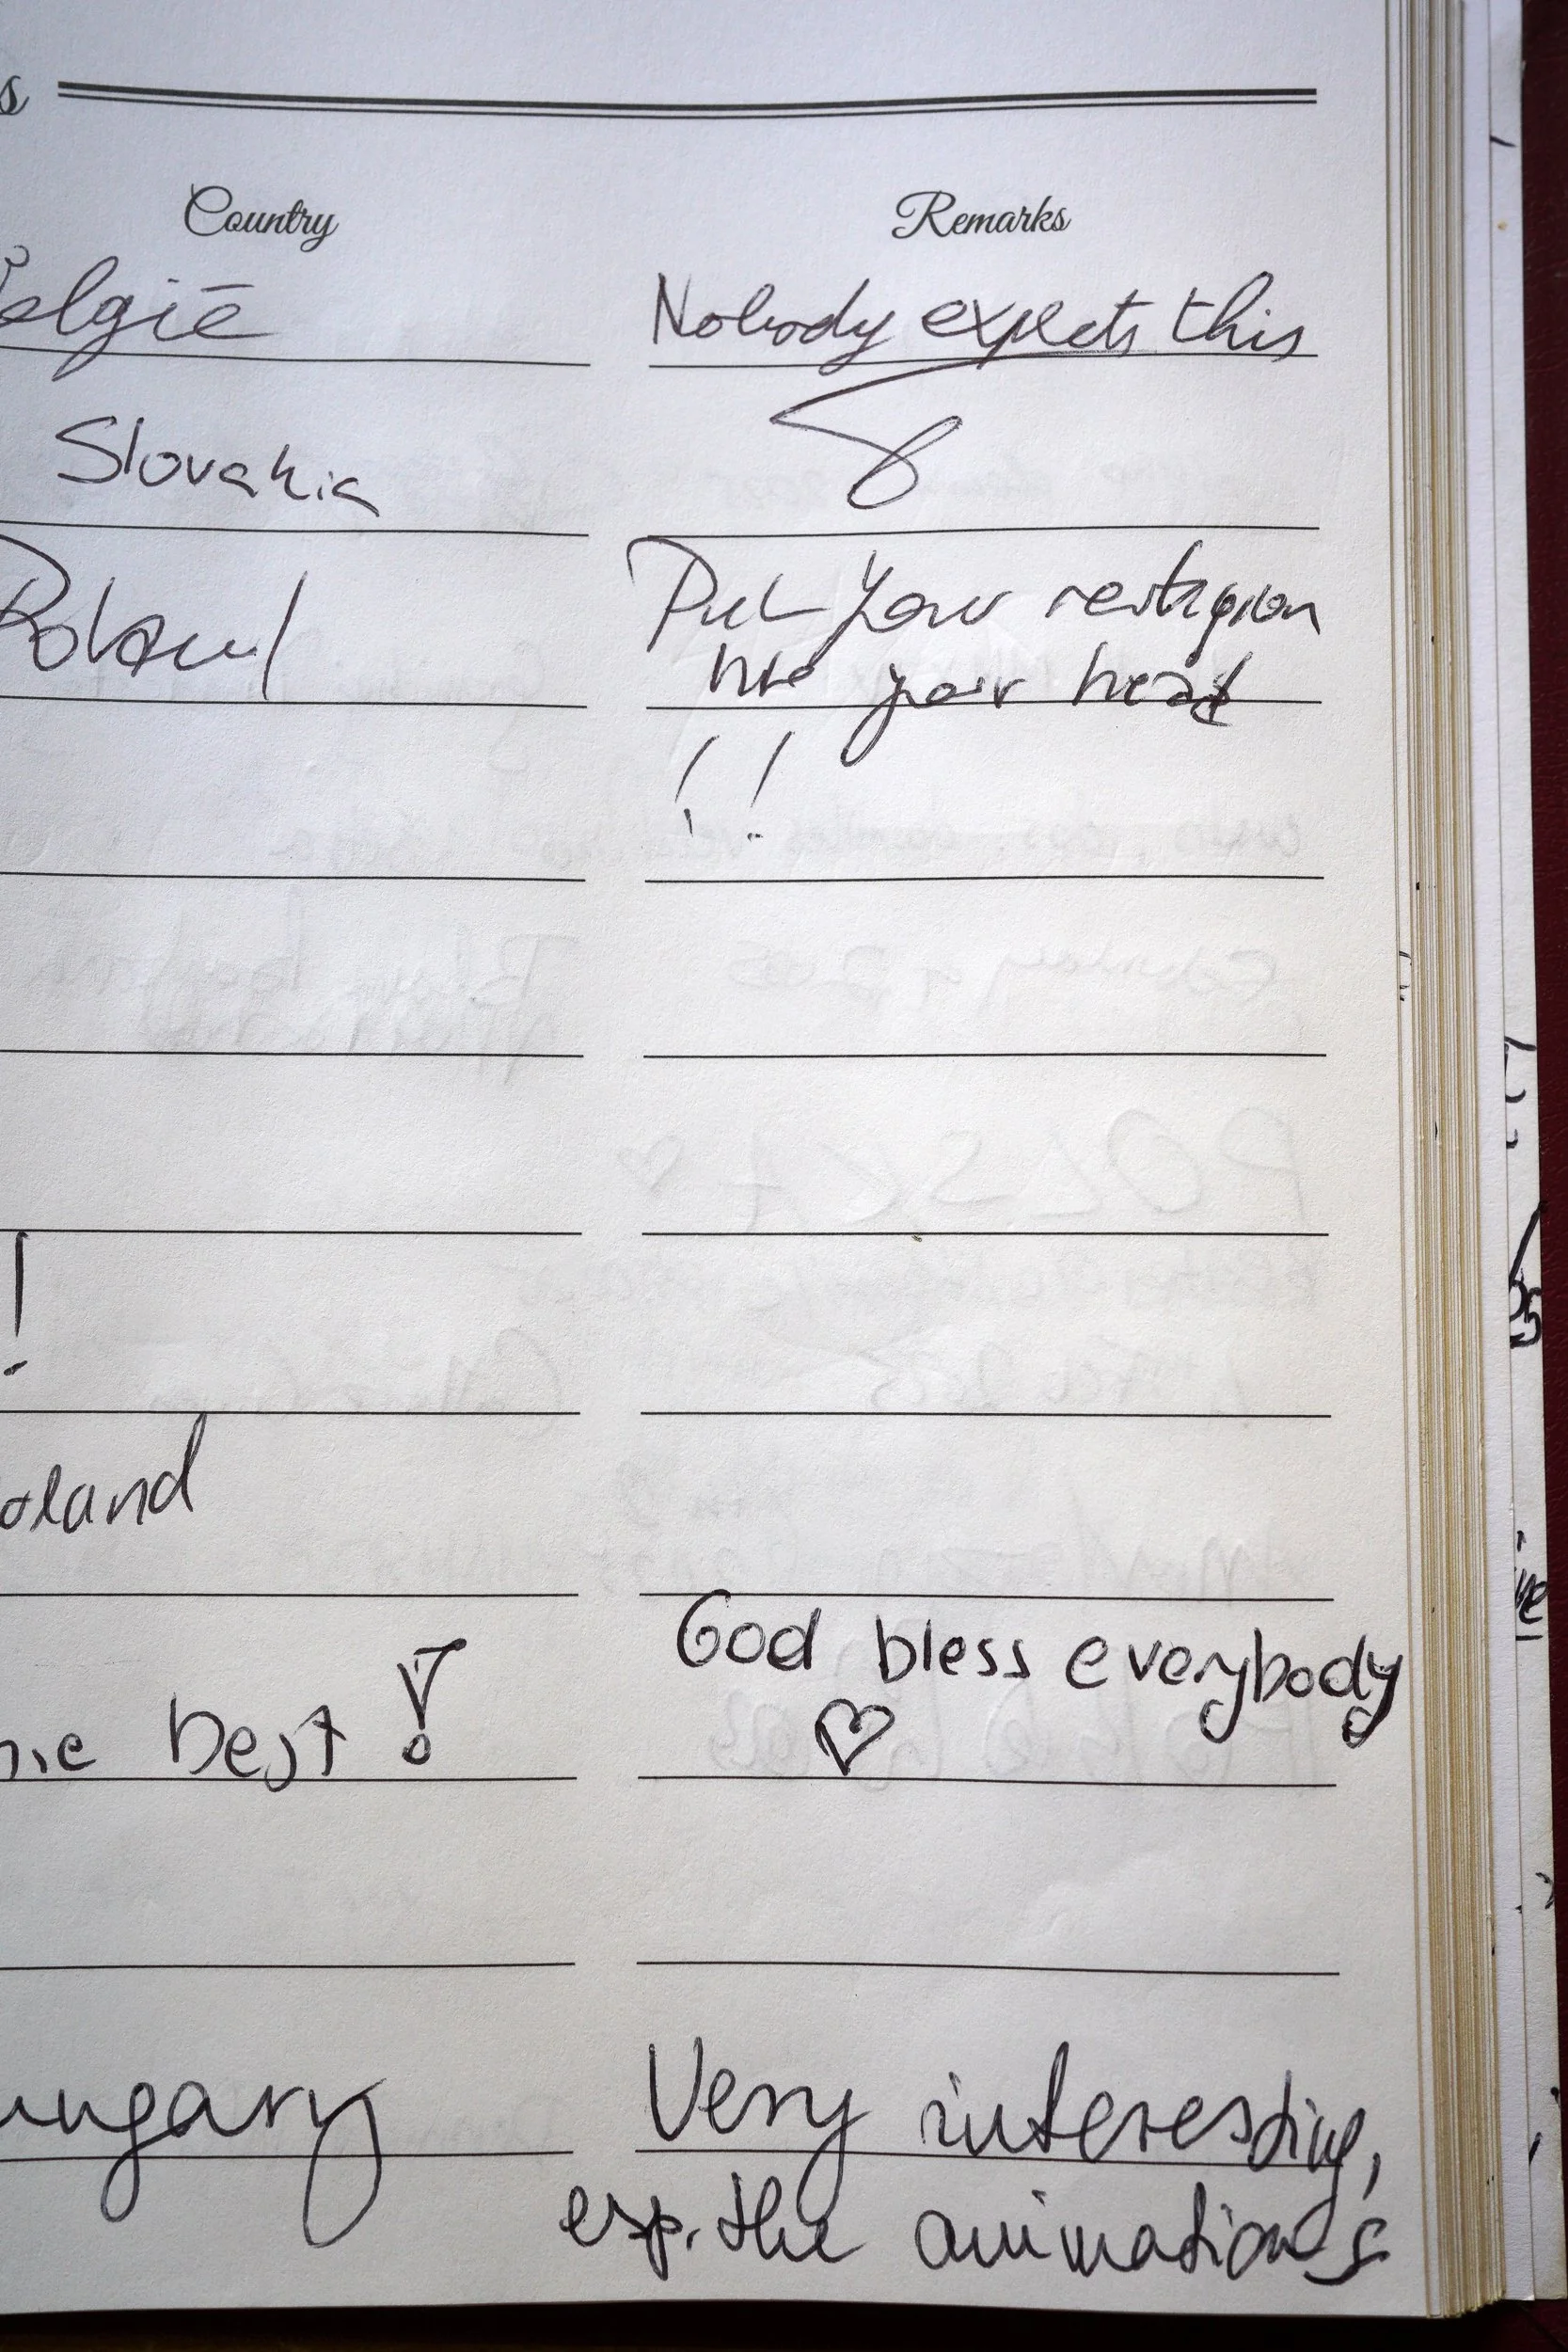 s
Country Remarks
elgië Nobody expects this
Slovakia
Poland Put your
your head
!!
!
oland
God bless everybody
best!
ungary Very interesting,
esp. the animations